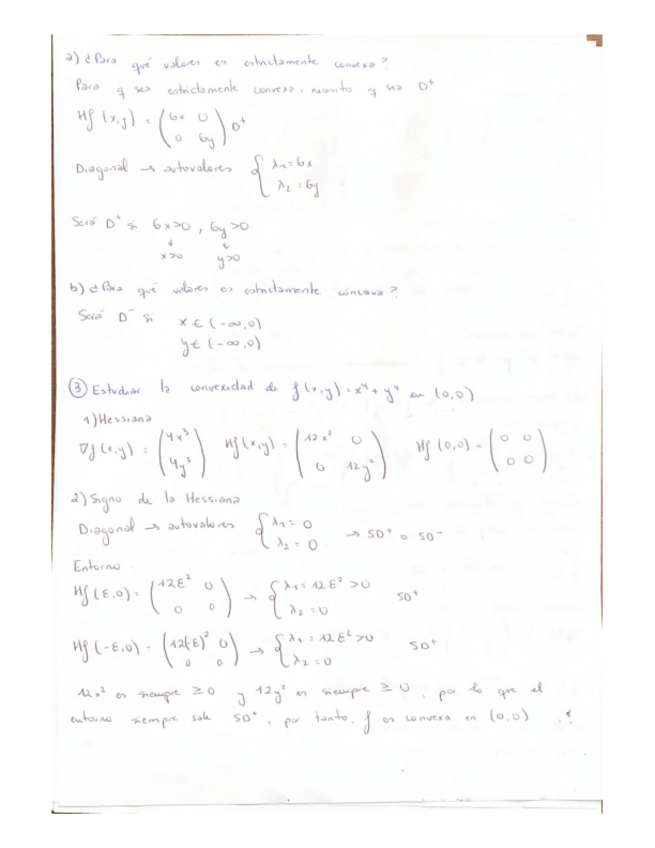 a) ¿Para qué valores es estrictamente convexa?
Para q sea estrictamente convexa, necesito q sea D⁺
Hf (x,y) = ( 6x 0 / 0 6y ) D⁺
Diagonal → autovalores { λ₁ = 6x
λ₂ = 6y
Será D⁺ si 6x>0 , 6y>0
↓ ↓
x>0 y>0
b) ¿Para qué valores es estrictamente cóncava?
Será D⁻ si x ∈ (-∞,0)
y ∈ (-∞,0)
③ Estudiar la convexidad de f(x,y) = x⁴ + y⁴ en (0,0)
1) Hessiana
∇f (x,y) = ( 4x³ / 4y³ ) Hf (x,y) = ( 12x² 0 / 0 12y² ) Hf (0,0) = ( 0 0 / 0 0 )
2) Signo de la Hessiana
Diagonal → autovalores { λ₁ = 0
λ₂ = 0 → SD⁺ o SD⁻
Entorno:
Hf (ε,0) = ( 12ε² 0 / 0 0 ) → { λ₁ = 12ε² >0
λ₂ = 0 SD⁺
Hf (-ε,0) = ( 12(-ε)² 0 / 0 0 ) → { λ₁ = 12ε² >0
λ₂ = 0 SD⁺
12x² es siempre ≥ 0 y 12y² es siempre ≥ 0, por lo que el
entorno siempre sale SD⁺, por tanto, f es convexa en (0,0)